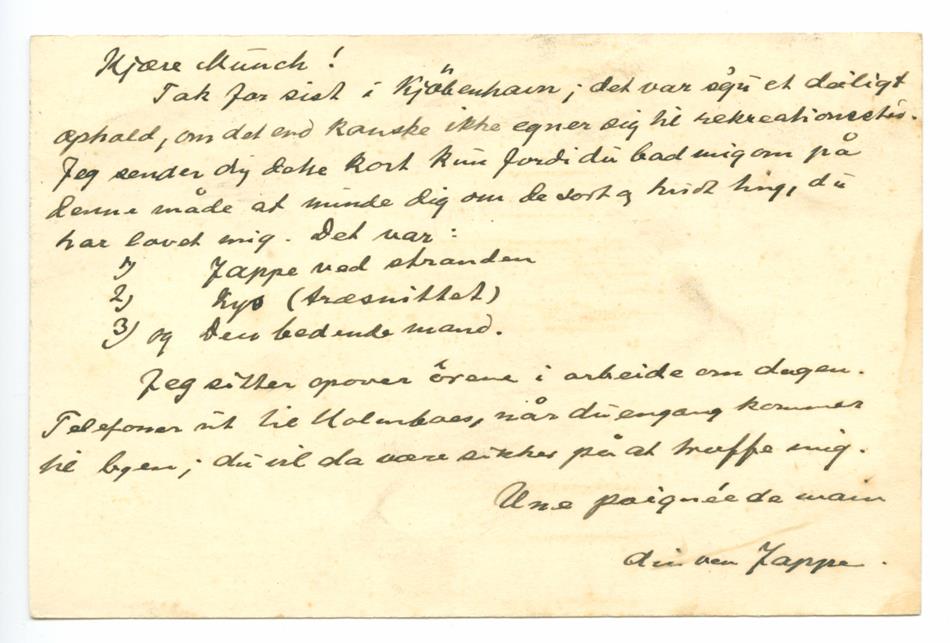 Kjære Munch!
Tak for sist i Kjöbenhavn; det var s'gu et deiligt
ophold, om det end kanske ikke egner sig til rekreationssted.
Jeg sender dig dette kort kun fordi du bad mig om på
denne måde at minde dig om de sort og hvidt ting, du
har lovet mig. Det var:
1) Jappe ved stranden
2) Kys (træsnittet)
3) og Den bedende mand.
Jeg sitter opover örene i arbeide om dagen.
Telefoner ut til Holmboes, når du engang kommer
til byen; du vil da være sikker på at træffe mig.
Une poignée de main
din ven Jappe.